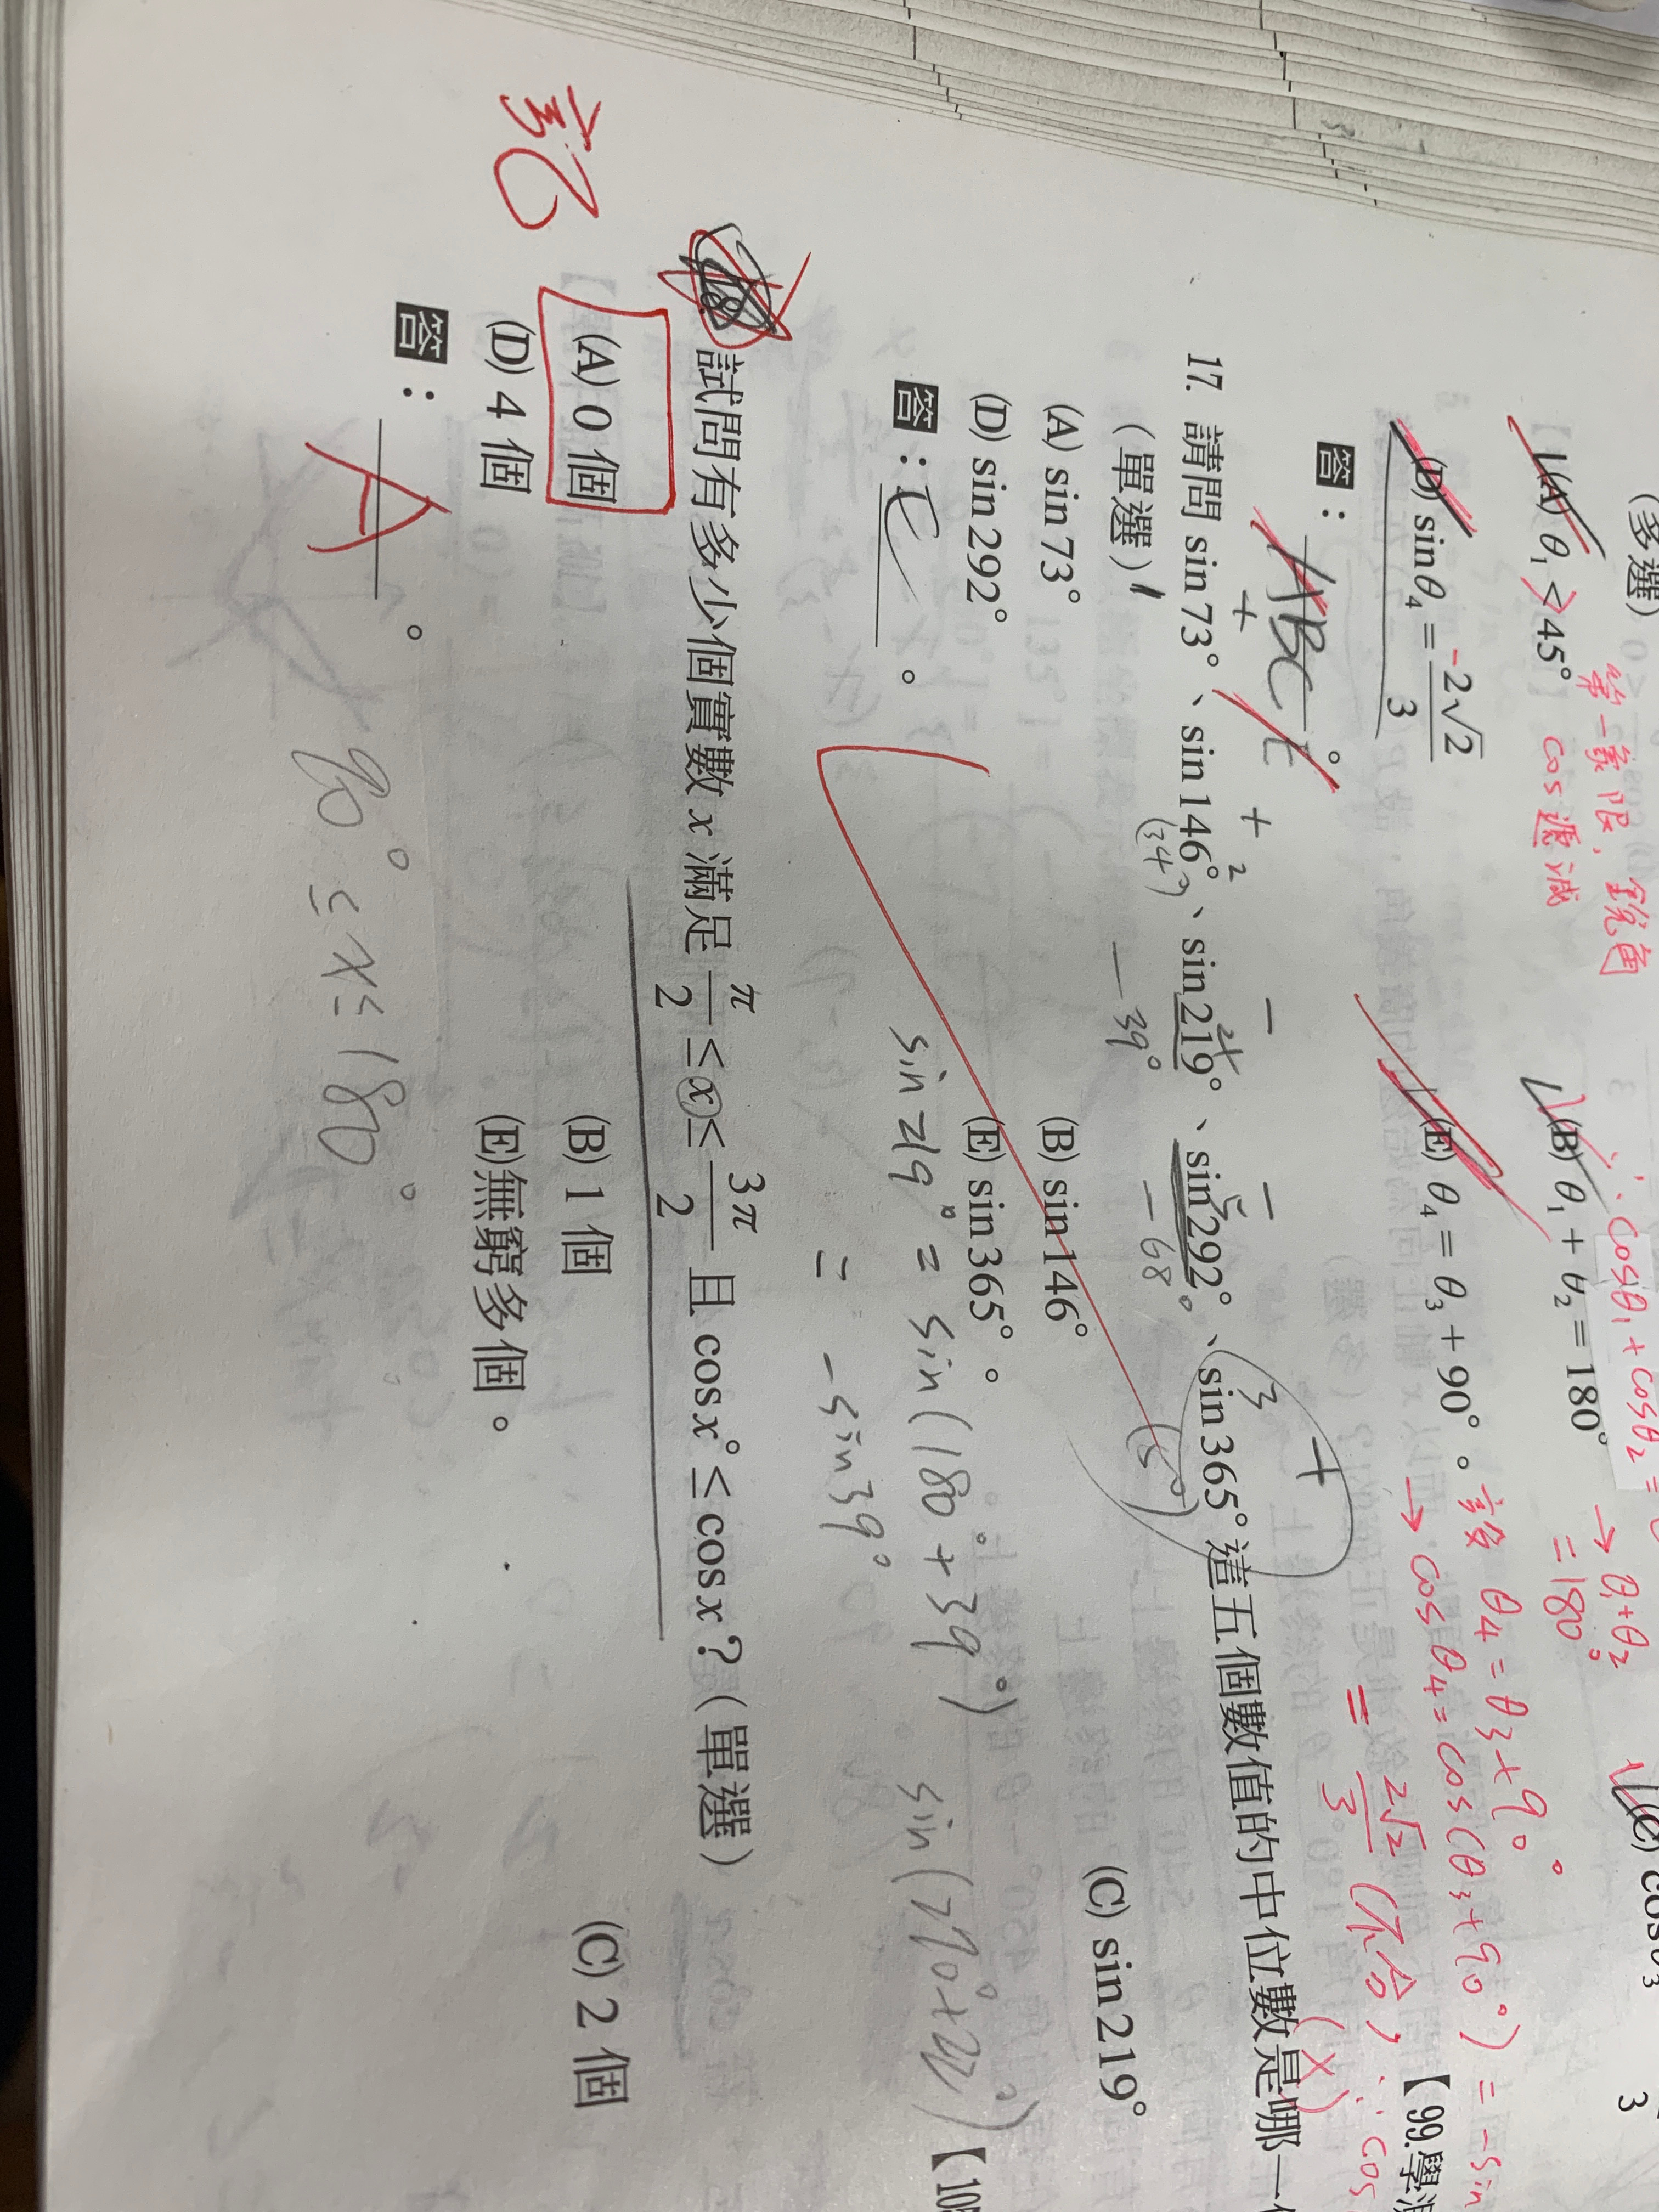 (多選)
(A) θ₁ < 45° 第一象限, 銳角 cos遞減
(B) θ₁ + θ₂ = 180°
∵ cosθ₁ + cosθ₂ =
→ θ₁+θ₂
= 180°
(C) cosθ₃
3
(D) sinθ₄ = -2√2/3
(E) θ₄ = θ₃ + 90°。 θ₄ = θ₃ + 90°
→ cosθ₄ = cos(θ₃+90°) = -sin
= 2√2/3 (不合), ∵ cos
(×)
答: ABC 。
【99.學測
17. 請問 sin73°、sin146°、sin219°、sin292°、sin365°這五個數值的中位數是哪一個
+ + - - +
2 3
(34°) -39° -68° (5°)
(單選)
(A) sin73° (B) sin146° (C) sin219°
(D) sin292° (E) sin365°。
答: E 。
sin219° = sin(180°+39°)
= -sin39°
sin(270°+22°)
18. 試問有多少個實數 x 滿足 π/2 ≤ x ≤ 3π/2 且 cosx° ≤ cosx?(單選)
記
(A) 0 個 (B) 1 個 (C) 2 個
(D) 4 個 (E)無窮多個。
答: A 。
90° ≤ x ≤ 180°